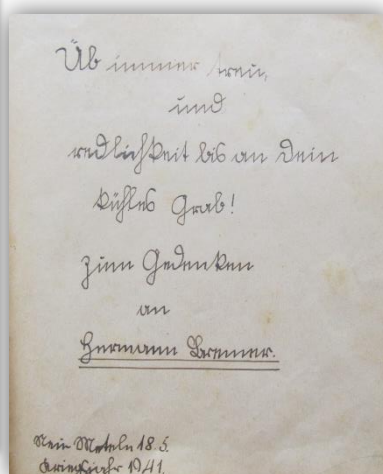 Üb immer treu,
und
redlichkeit bis an Dein
kühles Grab!
zum Gedenken
an
Hermann Bremer.
Klein Meteln 18. 5.
Kriegsjahr 1941.